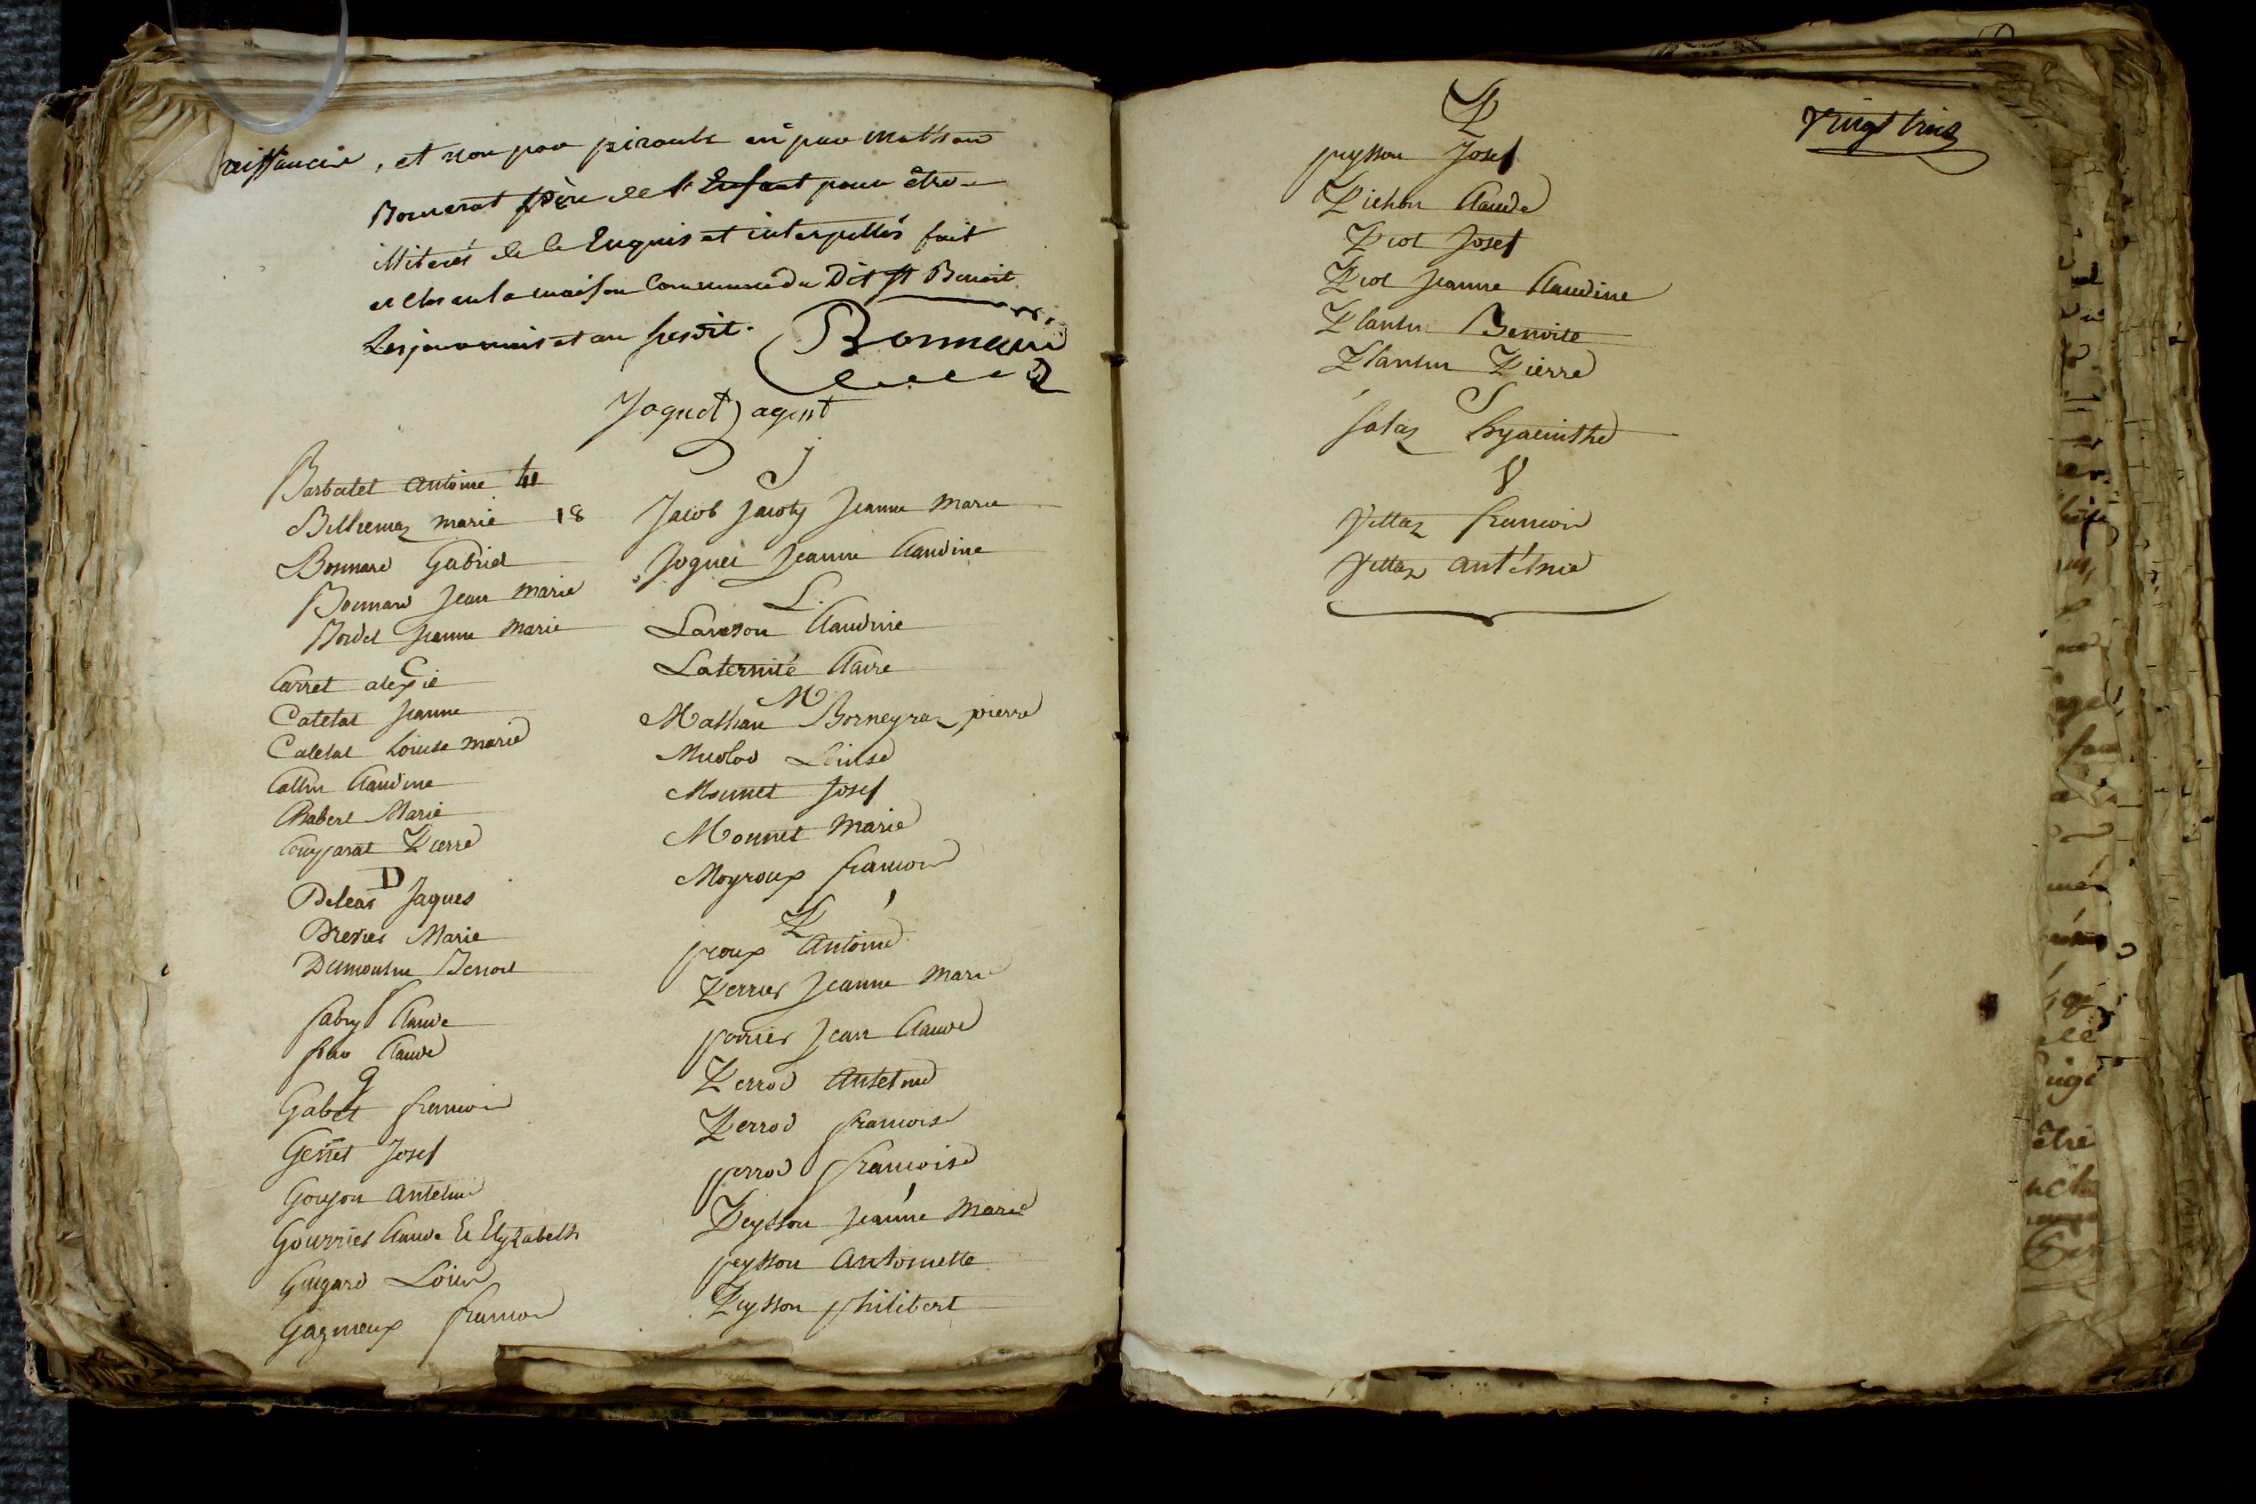 naissance, et non par piroute ni par Mathan
Bornerat père de l'Enfant pour être
illiterés de ce Enquis et interpellés fait
et clos en la maison Commune du Dit St Benoit
Les jour mois et an susdit. Bonnard
Joquet agent
Barbatet antoine
Billiemaz marie 18
Bonnard Gabriel
Bonnard Jean Marie
Bordel Jeanne Marie
C
Carret alexie
Catelat Jeanne
Catelat Louise marie
Collin Claudine
Chabert Marie
Comparat Pierre
D
Deleas Jaques
Drevet Marie
Dumoulin Benoit
f
fabry Claude
Claude
g
Gabet francois
Genet Josef
Goujon antelme
Gourrier Claude et Elyzabeth
Guigard Louis
Gagneux francois
J
Jacob Jacoty Jeanne Marie
Joguet Jeanne Claudine
L.
Lanson Claudine
Laternité Claire
M
Mathan Borneyraz pierre
Louise
Monnet Josef
Monnet Marie
Moyroux francois
P
proux Antoine
Perrier Jeanne Marie
poirier Jean Claude
Perrod Antelme
Perrod francoise
perrod francoise
Peysson Jeanne Marie
peysson Antoinette
Peysson philibert
Vingt trois
P
peysson Josef
Pichon Claude
Piot Josef
Piot Jeanne Claudine
Plantin Benoite
Plantin Pierre
S
Salaz hyacinthe
V
Vettaz francois
Vettaz antelme